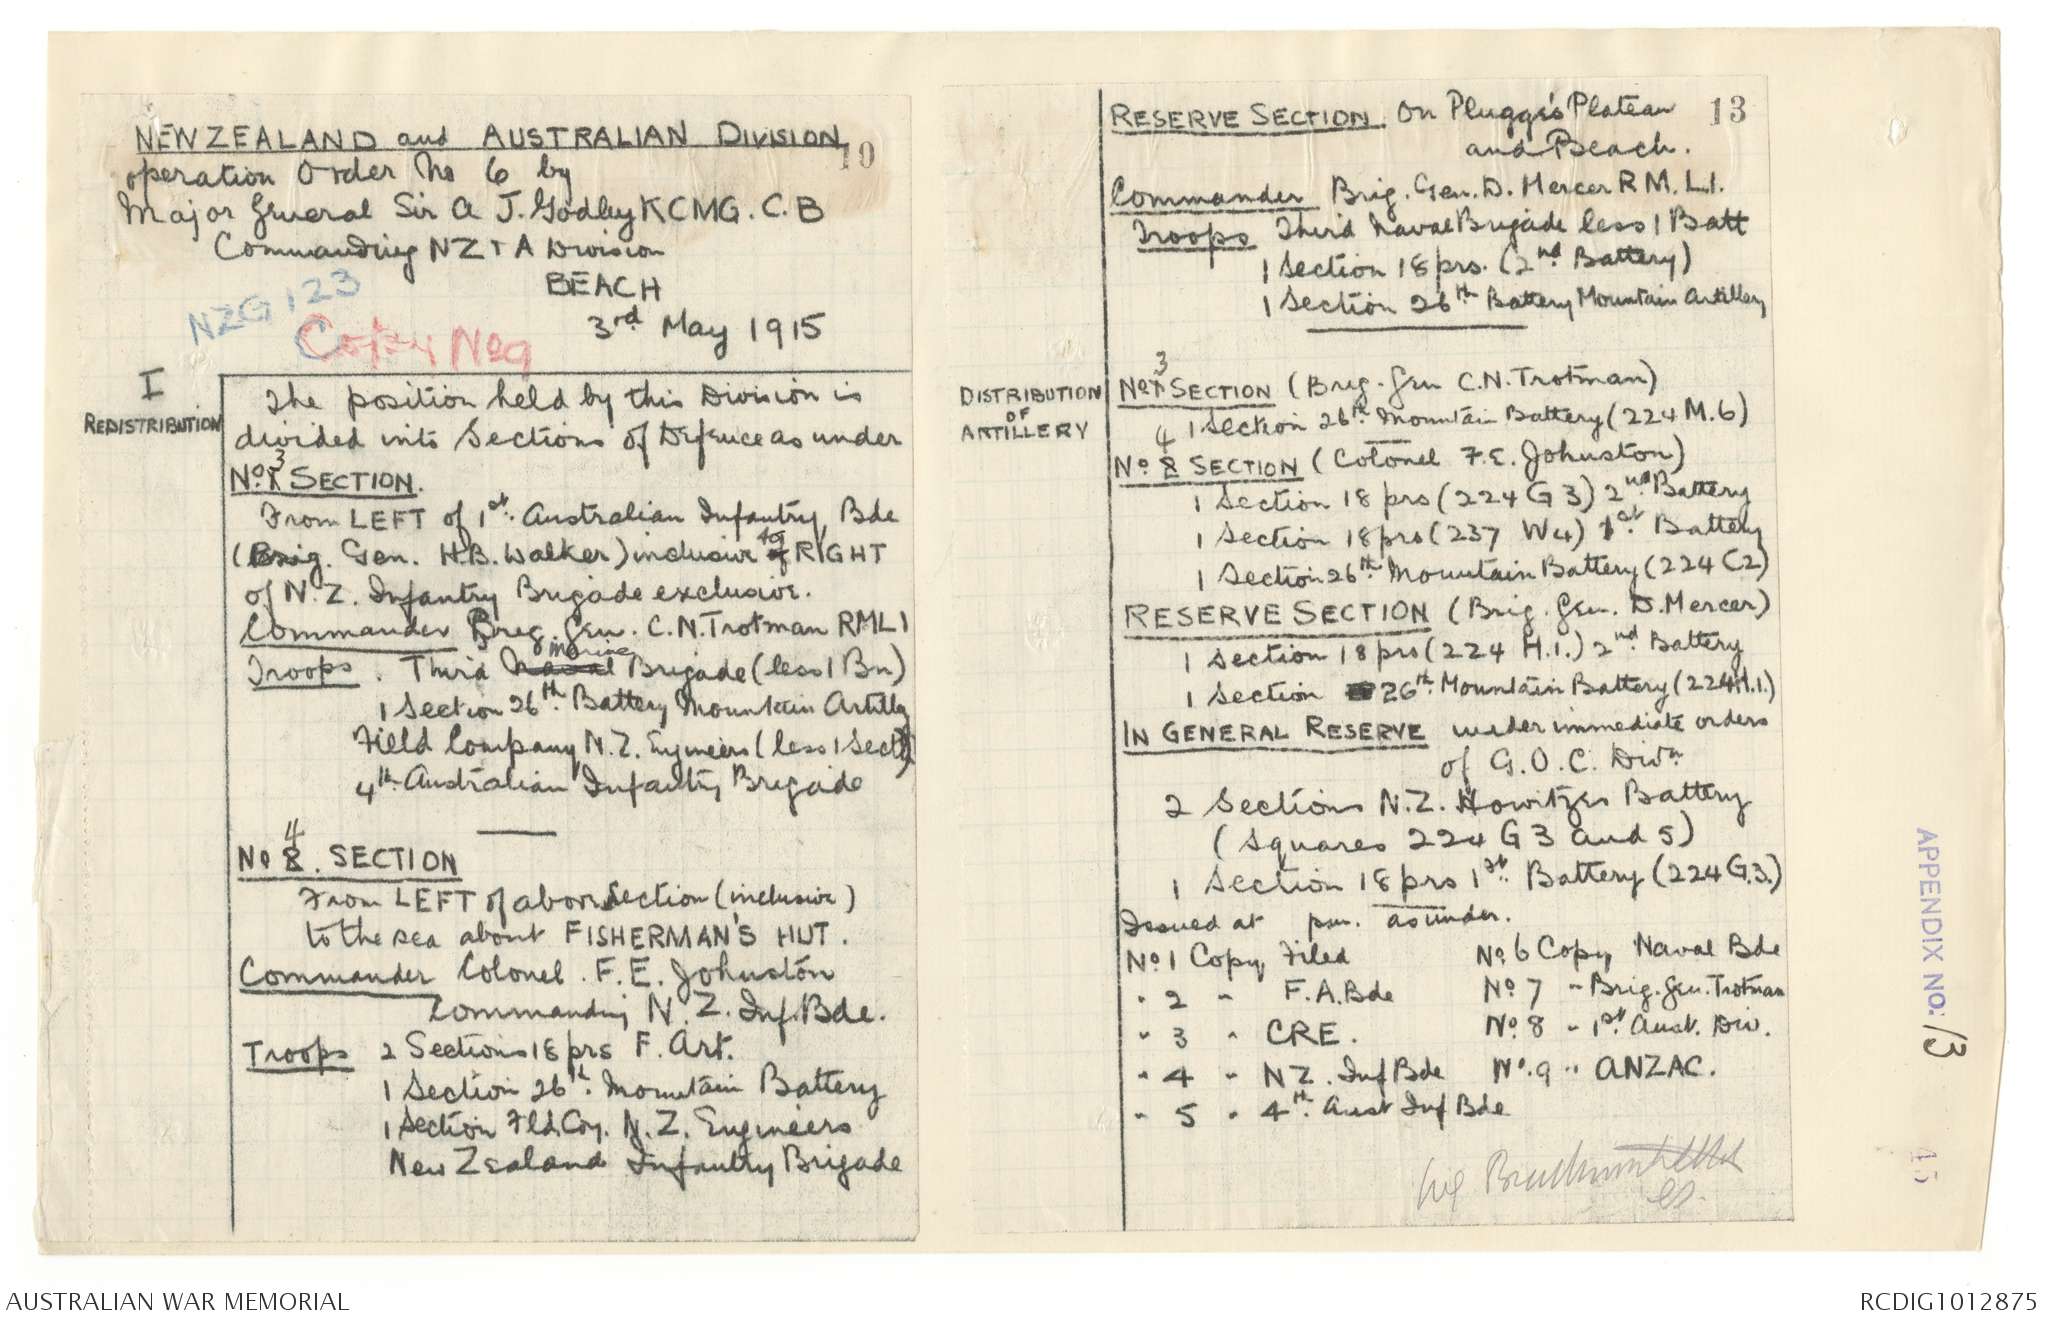 NEW ZEALAND and AUSTRALIAN DIVISION
10
operation Order No 6 by
Major General Sir A J. Godley KCMG. C.B
Commanding NZ & A Division
BEACH
NZG 123
3rd May 1915
Copy No 9
I
REDISTRIBUTION
The position held by this Division is
divided into Sections of Defence as under
No. 3 SECTION.
From LEFT of 1st. Australian Infantry Bde
(Brig. Gen. H.B. Walker) inclusive to RIGHT
of N.Z. Infantry Brigade exclusive.
Commander Brig. Gen. C.N. Trotman RMLI
Troops. Third Naval Marine Brigade (less 1 Bn)
1 Section 26th. Battery Mountain Artilly
Field Company N.Z. Engineers (less 1 Sect)
4th. Australian Infantry Brigade
4
No 2. SECTION
From LEFT of above Section (inclusive)
to the sea about FISHERMAN'S HUT.
Commander Colonel. F.E. Johnston
Commanding N.Z. Inf. Bde.
Troops 2 Sections 18 prs F. Art.
1 Section 26th. Mountain Battery
1 Section Fld. Coy. N.Z. Engineers
New Zealand Infantry Brigade
RESERVE SECTION On Plugge's Plateau
13
and Beach.
Commander Brig. Gen. D. Mercer R M. L.I.
Troops Third Naval Brigade less 1 Batt
1 Section 18 prs. (2nd Battery)
1 Section 26th Battery Mountain Artillery
DISTRIBUTION
OF
ARTILLERY
3
No 1 SECTION (Brig. Gen C.N. Trotman)
1 Section 26th. Mountain Battery (224 M.6)
4
No 2 SECTION (Colonel F.E. Johnston)
1 Section 18 prs (224 G 3) 2nd Battery
1 Section 18 prs (237 W4) 1st. Battery
1 Section 26th. Mountain Battery (224 C2)
RESERVE SECTION (Brig. Gen. D. Mercer)
1 Section 18 prs (224 H.1.) 2nd Battery
1 Section 26th. Mountain Battery (224 H.1.)
IN GENERAL RESERVE under immediate orders
of G.O.C. Divn
2 Sections N.Z. Howitzer Battery
(Squares 224 G 3 and 5)
1 Section 18 prs 1st. Battery (224 G.3.)
Issued at pm. as under.
No 1 Copy Filed No. 6 Copy Naval Bde
" 2 " F.A. Bde No 7 " Brig. Gen. Trotman
" 3 " CRE. No. 8 " 1st. Aust. Div.
" 4 " NZ. Inf Bde No. 9 " ANZAC.
" 5 " 4th. Aust Inf Bde
APPENDIX NO. 13
45
AUSTRALIAN WAR MEMORIAL
RCDIG1012875